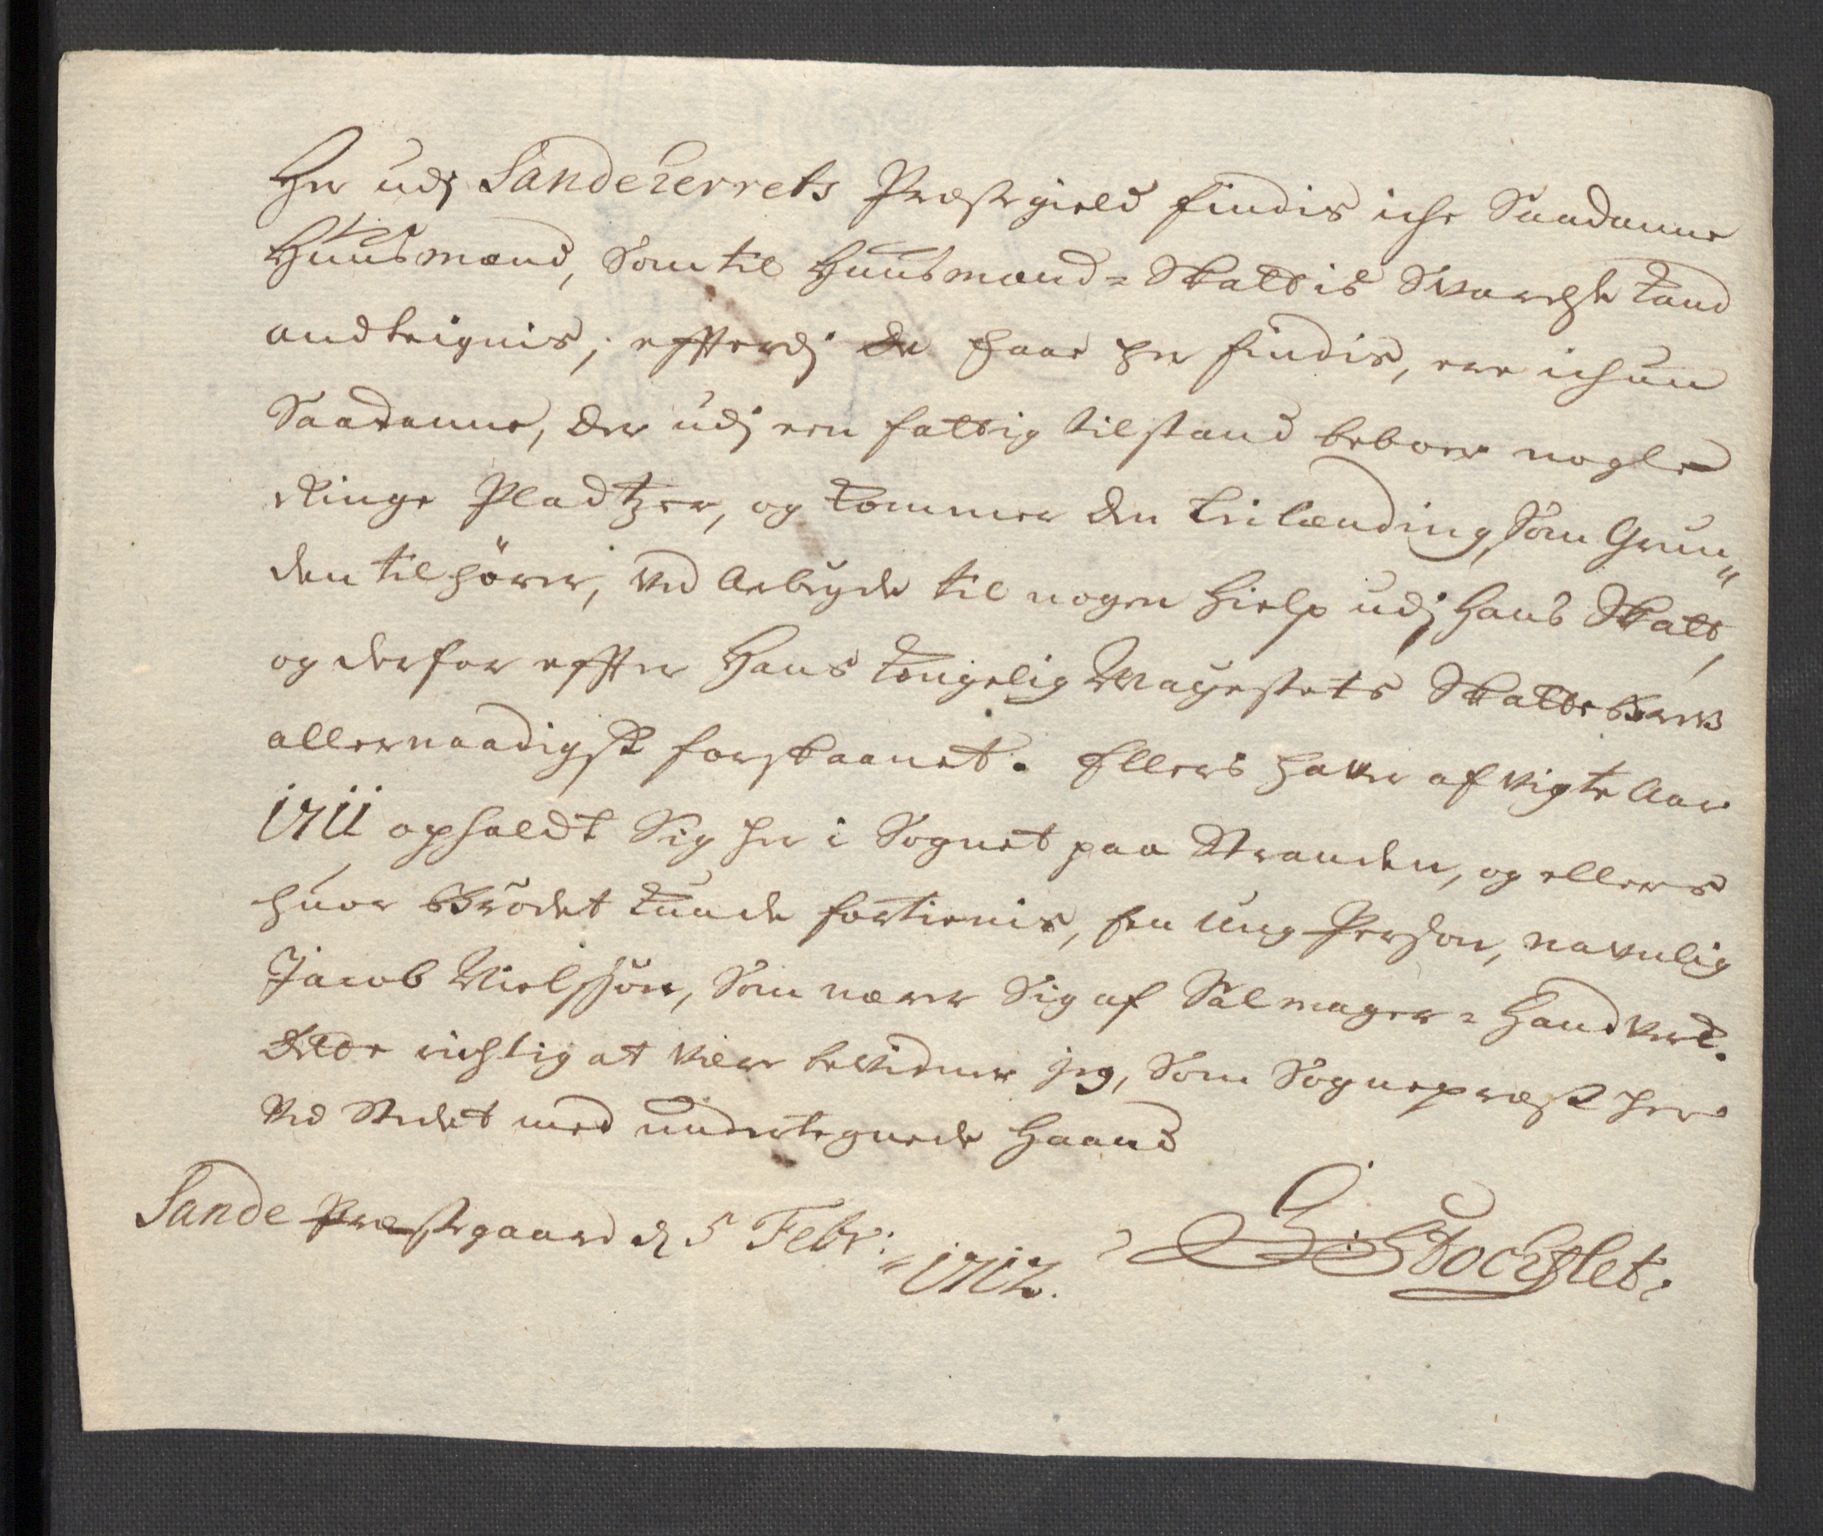 Her udj Sandeherrets Præstegield findis iche Saadanne
Huusmænd, Som til Huusmænd-Skattis Svarelse kand
andteignis; effterdj de faae her findis, ere ichun
Saadanne, der udj een fattig tilstand beboer nogle
Ringe Pladtzer, og kommer den Leilænding, som Grun„
den tilhører, ved Arbeyde til nogen hielp udj hans Skatt,
og derfor effter Hans Kongelig Mayestets Skattebrev
allernaadigst forskaanet. Ellers haver afvigte Aar
1711 opholdt Sig her i Sognet paa Stranden, og ellers
huor Brödet kunde fortienis, Een Ung Person, navnlig
Jacob Nielssøn, Som nærer Sig af Salmager-Handverk.
Dette richtig at være bevidner jeg, Som Sognepræst her
ved Stedet med undertegnede Haand
Sande Præstegaard d 5 Febr: 1712.
G: Stochflet.